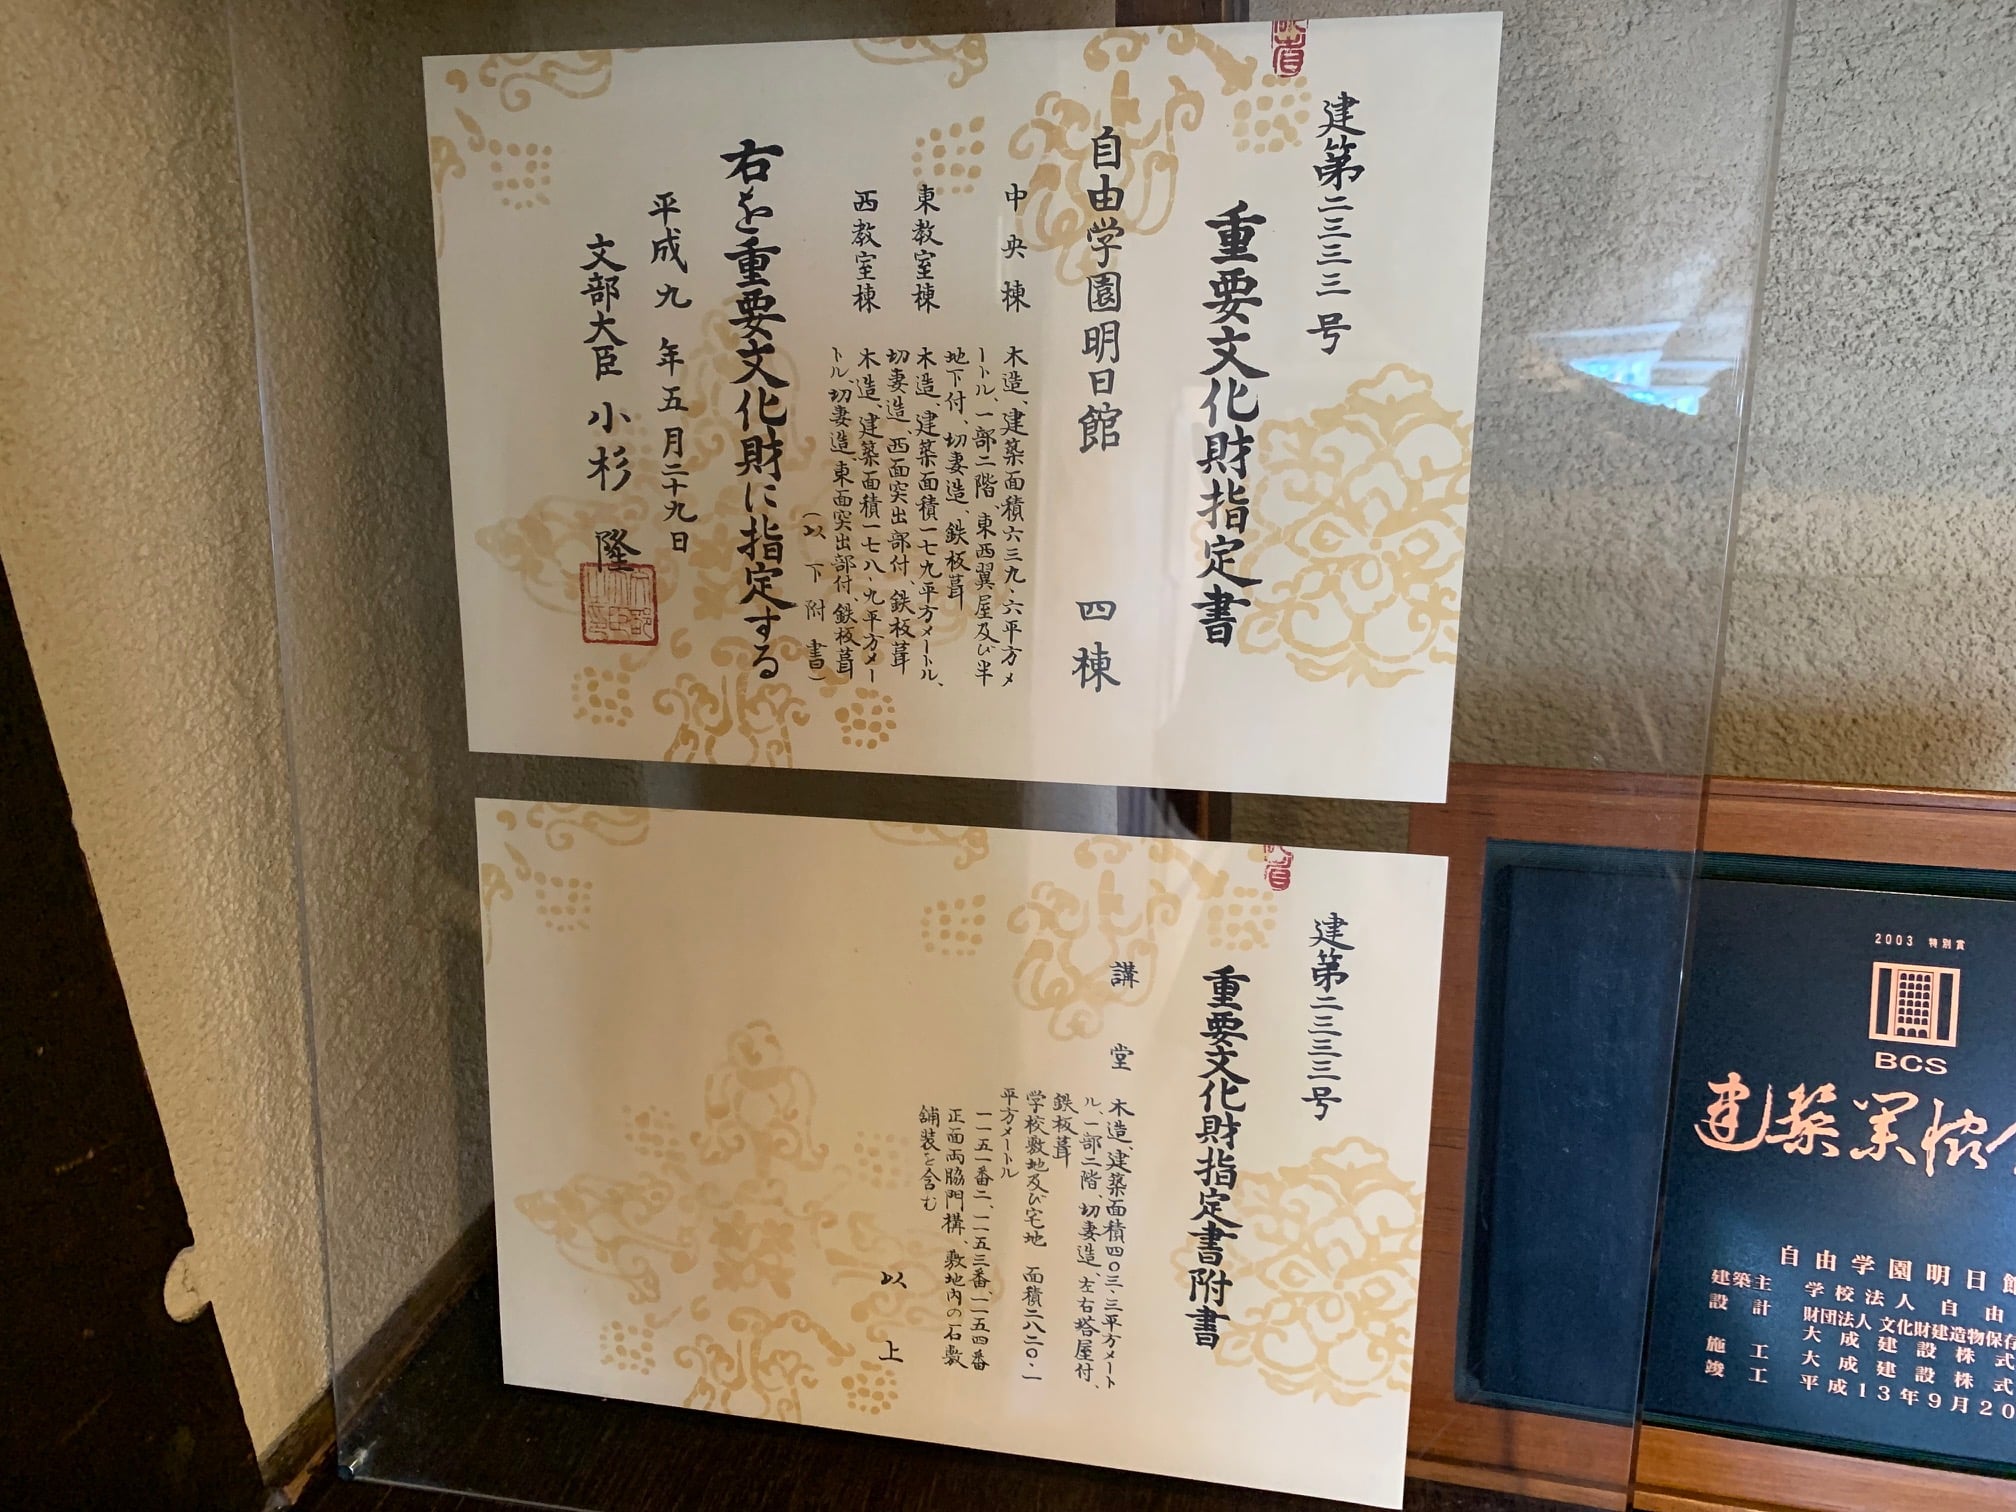 建第二三三三号
重要文化財指定書
自由学園明日館 四棟
中央棟 木造、建築面積六三九・六平方メ
ートル、一部二階、東西翼屋及び半
地下付、切妻造、鉄板葺
東教室棟 木造、建築面積一七九平方メートル、
切妻造、西面突出部付、鉄板葺
西教室棟 木造、建築面積一七八・九平方メー
トル、切妻造、東面突出部付、鉄板葺
(以下附書)
右を重要文化財に指定する
平成九年五月二十九日
文部大臣 小杉 隆
建第二三三三号
重要文化財指定書附書
講堂 木造、建築面積四〇三・三平方メート
ル、一部二階、切妻造、左右塔屋付、
鉄板葺
学校敷地及び宅地 面積二八二〇・一
平方メートル
一一五一番二、一一五三番、一一五四番
正面両脇門構、敷地内の石敷
舗装を含む
以上
2003 特別賞
BCS
建築業協
自由学園明日館
建築主 学校法人 自由
設計 財団法人 文化財建造物保存
大成建設株式
施工 大成建設株式
竣工 平成13年9月20